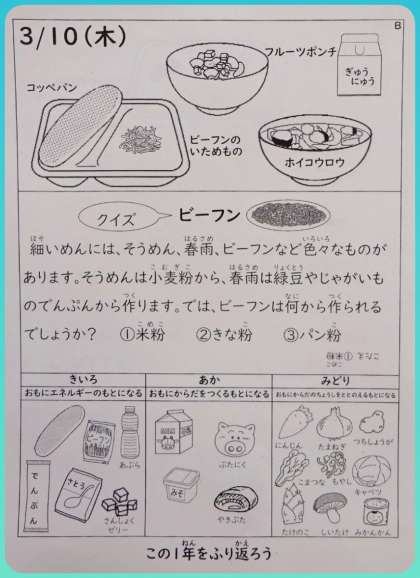 3/10(木)
B
フルーツポンチ
ぎゅう
にゅう
コッペパン
ビーフンの
いためもの
ホイコウロウ
クイズ
ビーフン
細いめんには、そうめん、春雨、ビーフンなど色々なものが
ほそ はるさめ いろいろ
あります。そうめんは小麦粉から、春雨は緑豆やじゃがいも
こむぎこ はるさめ りょくとう
のでんぷんから作ります。では、ビーフンは何から作られる
つく なに つく
でしょうか? ①米粉 ②きな粉 ③パン粉
こめこ こ こ
こたえ ①米粉
こめこ
きいろ
おもにエネルギーのもとになる
あか
おもにからだをつくるもとになる
みどり
おもにからだのちょうしをととのえるもとになる
ビーフン
あぶら
でんぷん
さとう
さんしょく
ゼリー
ぶたにく
みそ
やきぶた
にんじん
たまねぎ
つちしょうが
こまつな
もやし
キャベツ
たけのこ
しいたけ
みかんかん
この1年をふり返ろう
ねん かえ